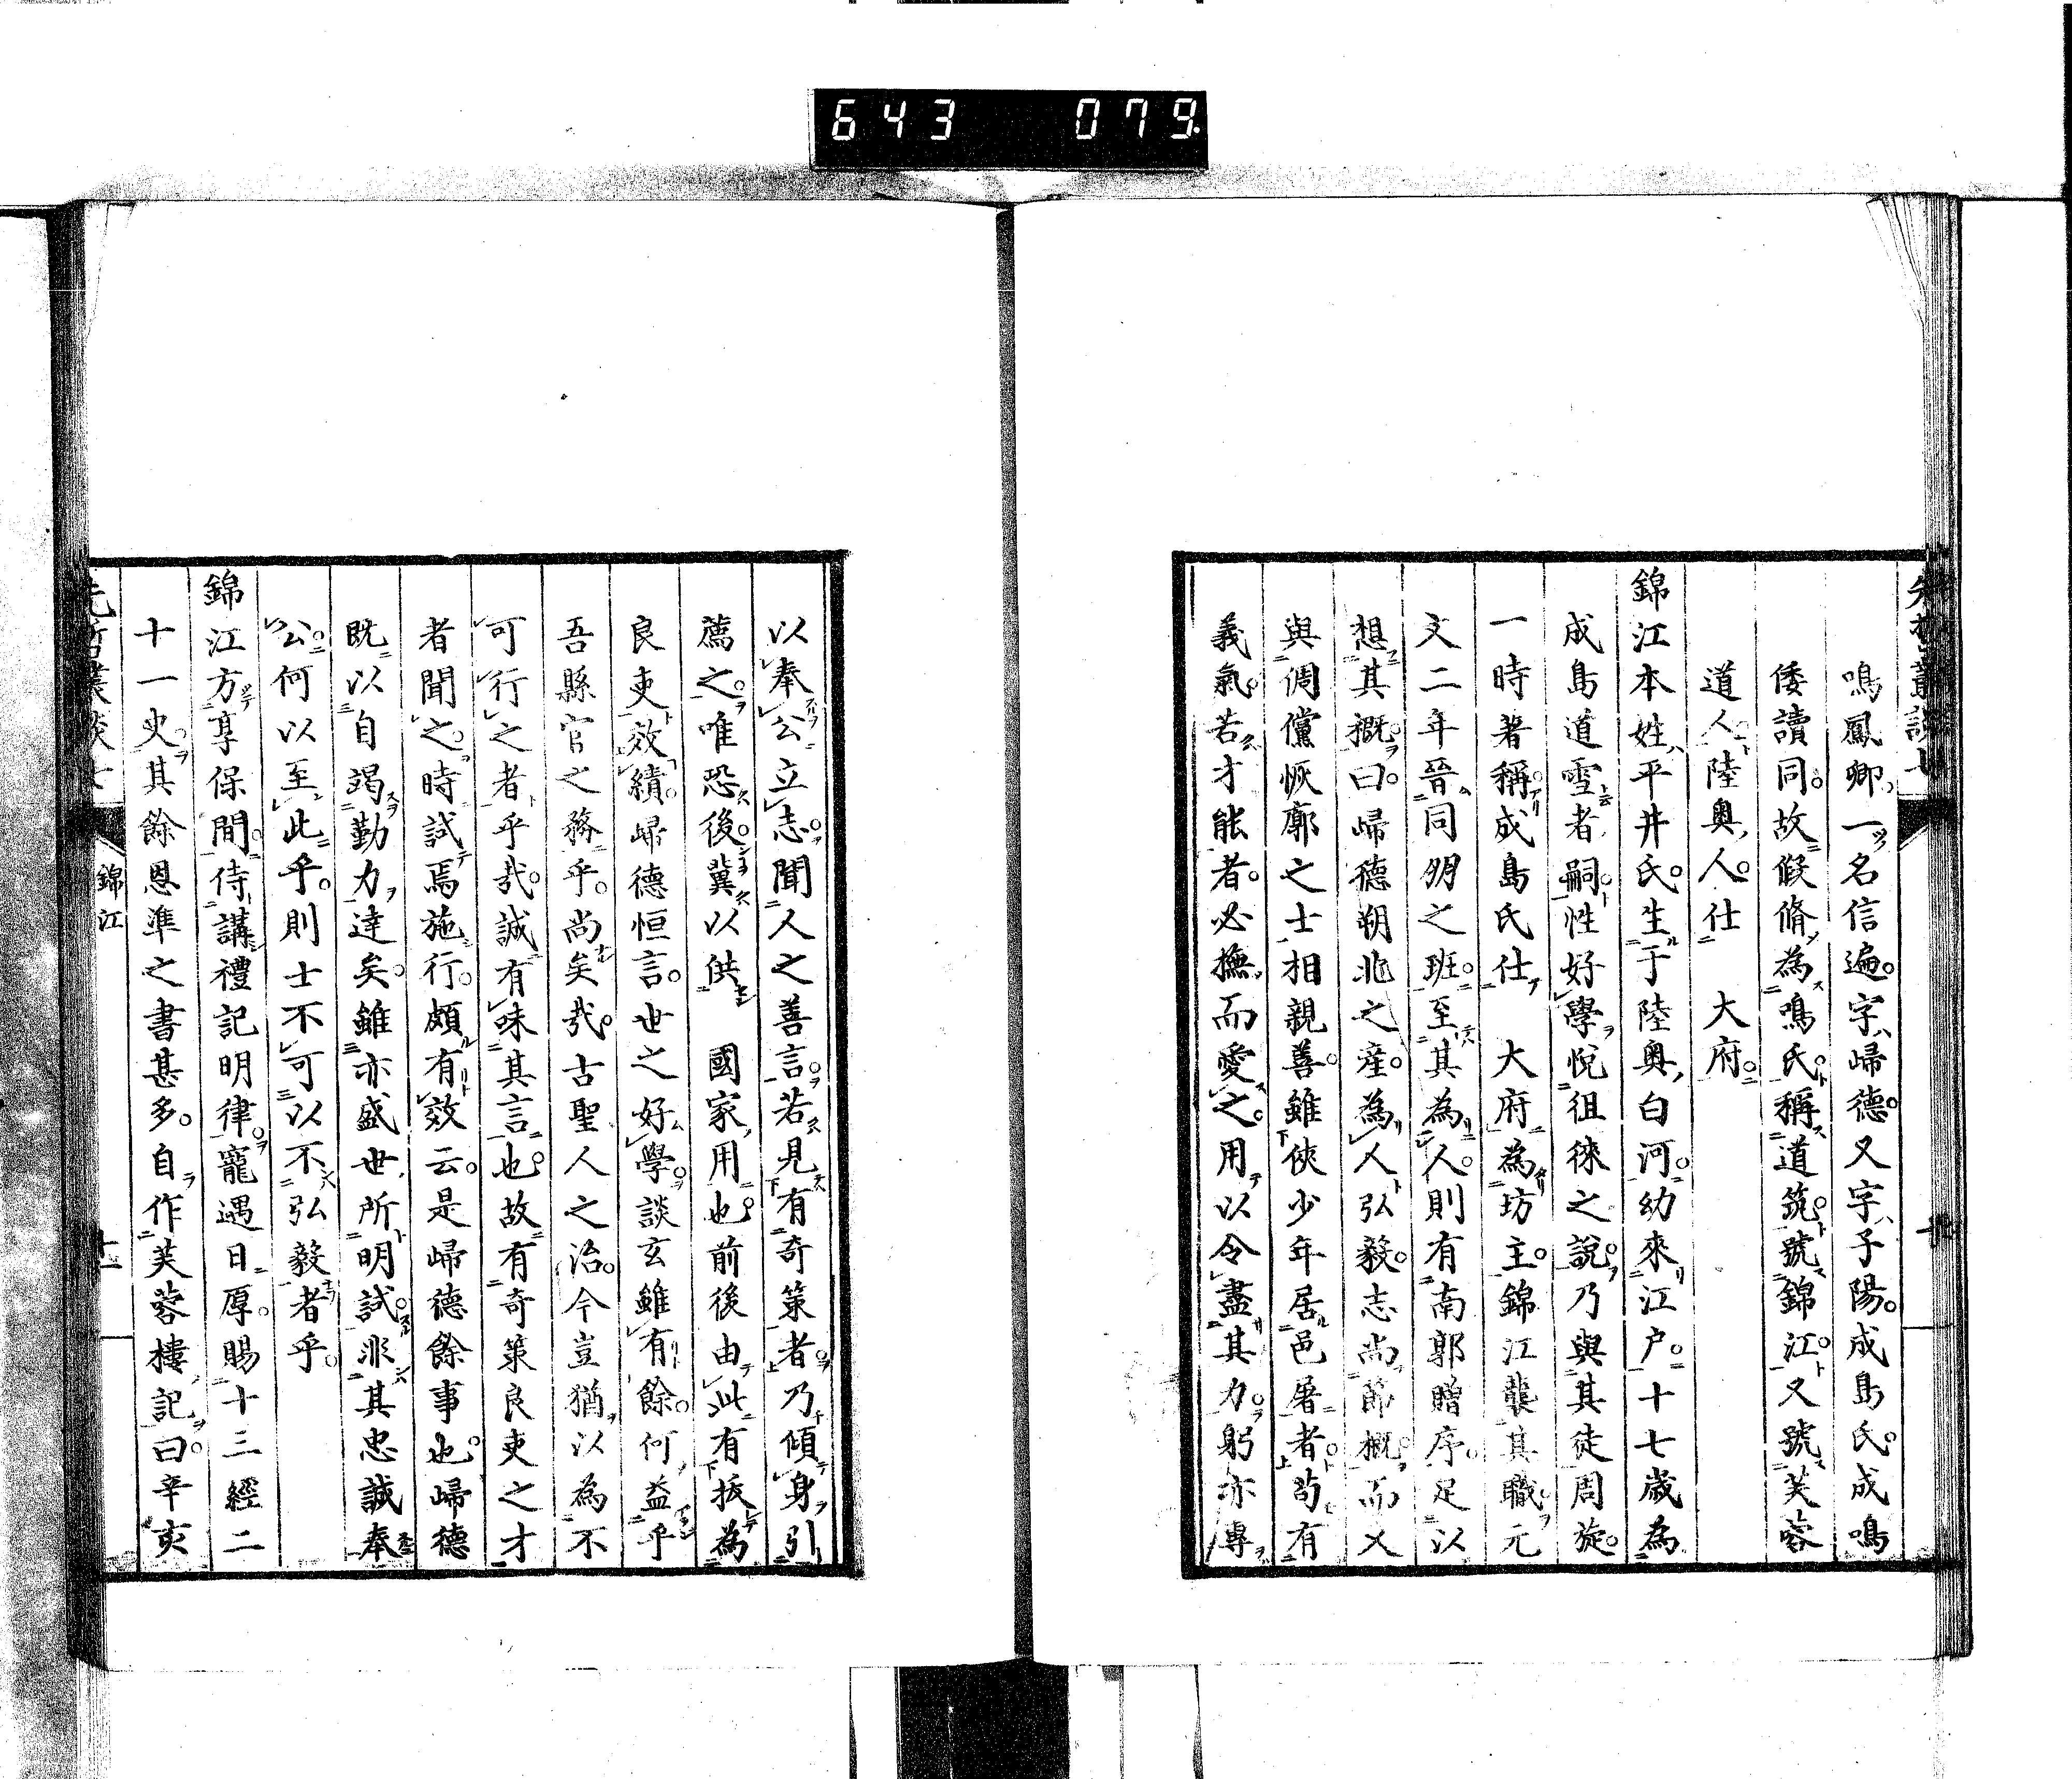 643 079
先哲叢談七
鳴鳳卿一名信遍字歸德又字子陽成島氏成鳴
倭讀同故假脩為鳴氏稱道筑號錦江又號芙蓉
道人陸奧人仕 大府
錦江本姓平井氏生于陸奧白河幼來江戶十七歲為
成島道雪者嗣性好學悅徂徠之說乃與其徒周旋
一時著稱成島氏仕 大府為坊主錦江襲其職元
文二年晉同朋之班至其為人則有南郭贈序足以
想其概曰歸德朔北之產為人弘毅志尚節概而又
與倜儻恢廓之士相親善雖俠少年居邑屠者苟有
義氣若才能者必撫而愛之用以令盡其力躬亦專
以奉公立志聞人之善言若見有奇策者乃傾身引
薦之唯恐後冀以供 國家用也前後由此有拔為
良吏效績歸德恒言世之好學談玄雖有餘何益乎
吾縣官之務乎尚矣哉古聖人之治今豈猶以為不
可行之者乎哉誠有味其言也故有奇策良吏之才
者聞之時試焉施行頗有效云是歸德餘事也歸德
既以自竭勤力達矣雖亦盛世所明試非其忠誠奉
公何以至此乎則士不可以不弘毅者乎
錦江方享保間侍講禮記明律寵遇日厚賜十三經二
十一史其餘恩準之書甚多自作芙蓉樓記曰辛亥
先哲叢談七
錦江
十一